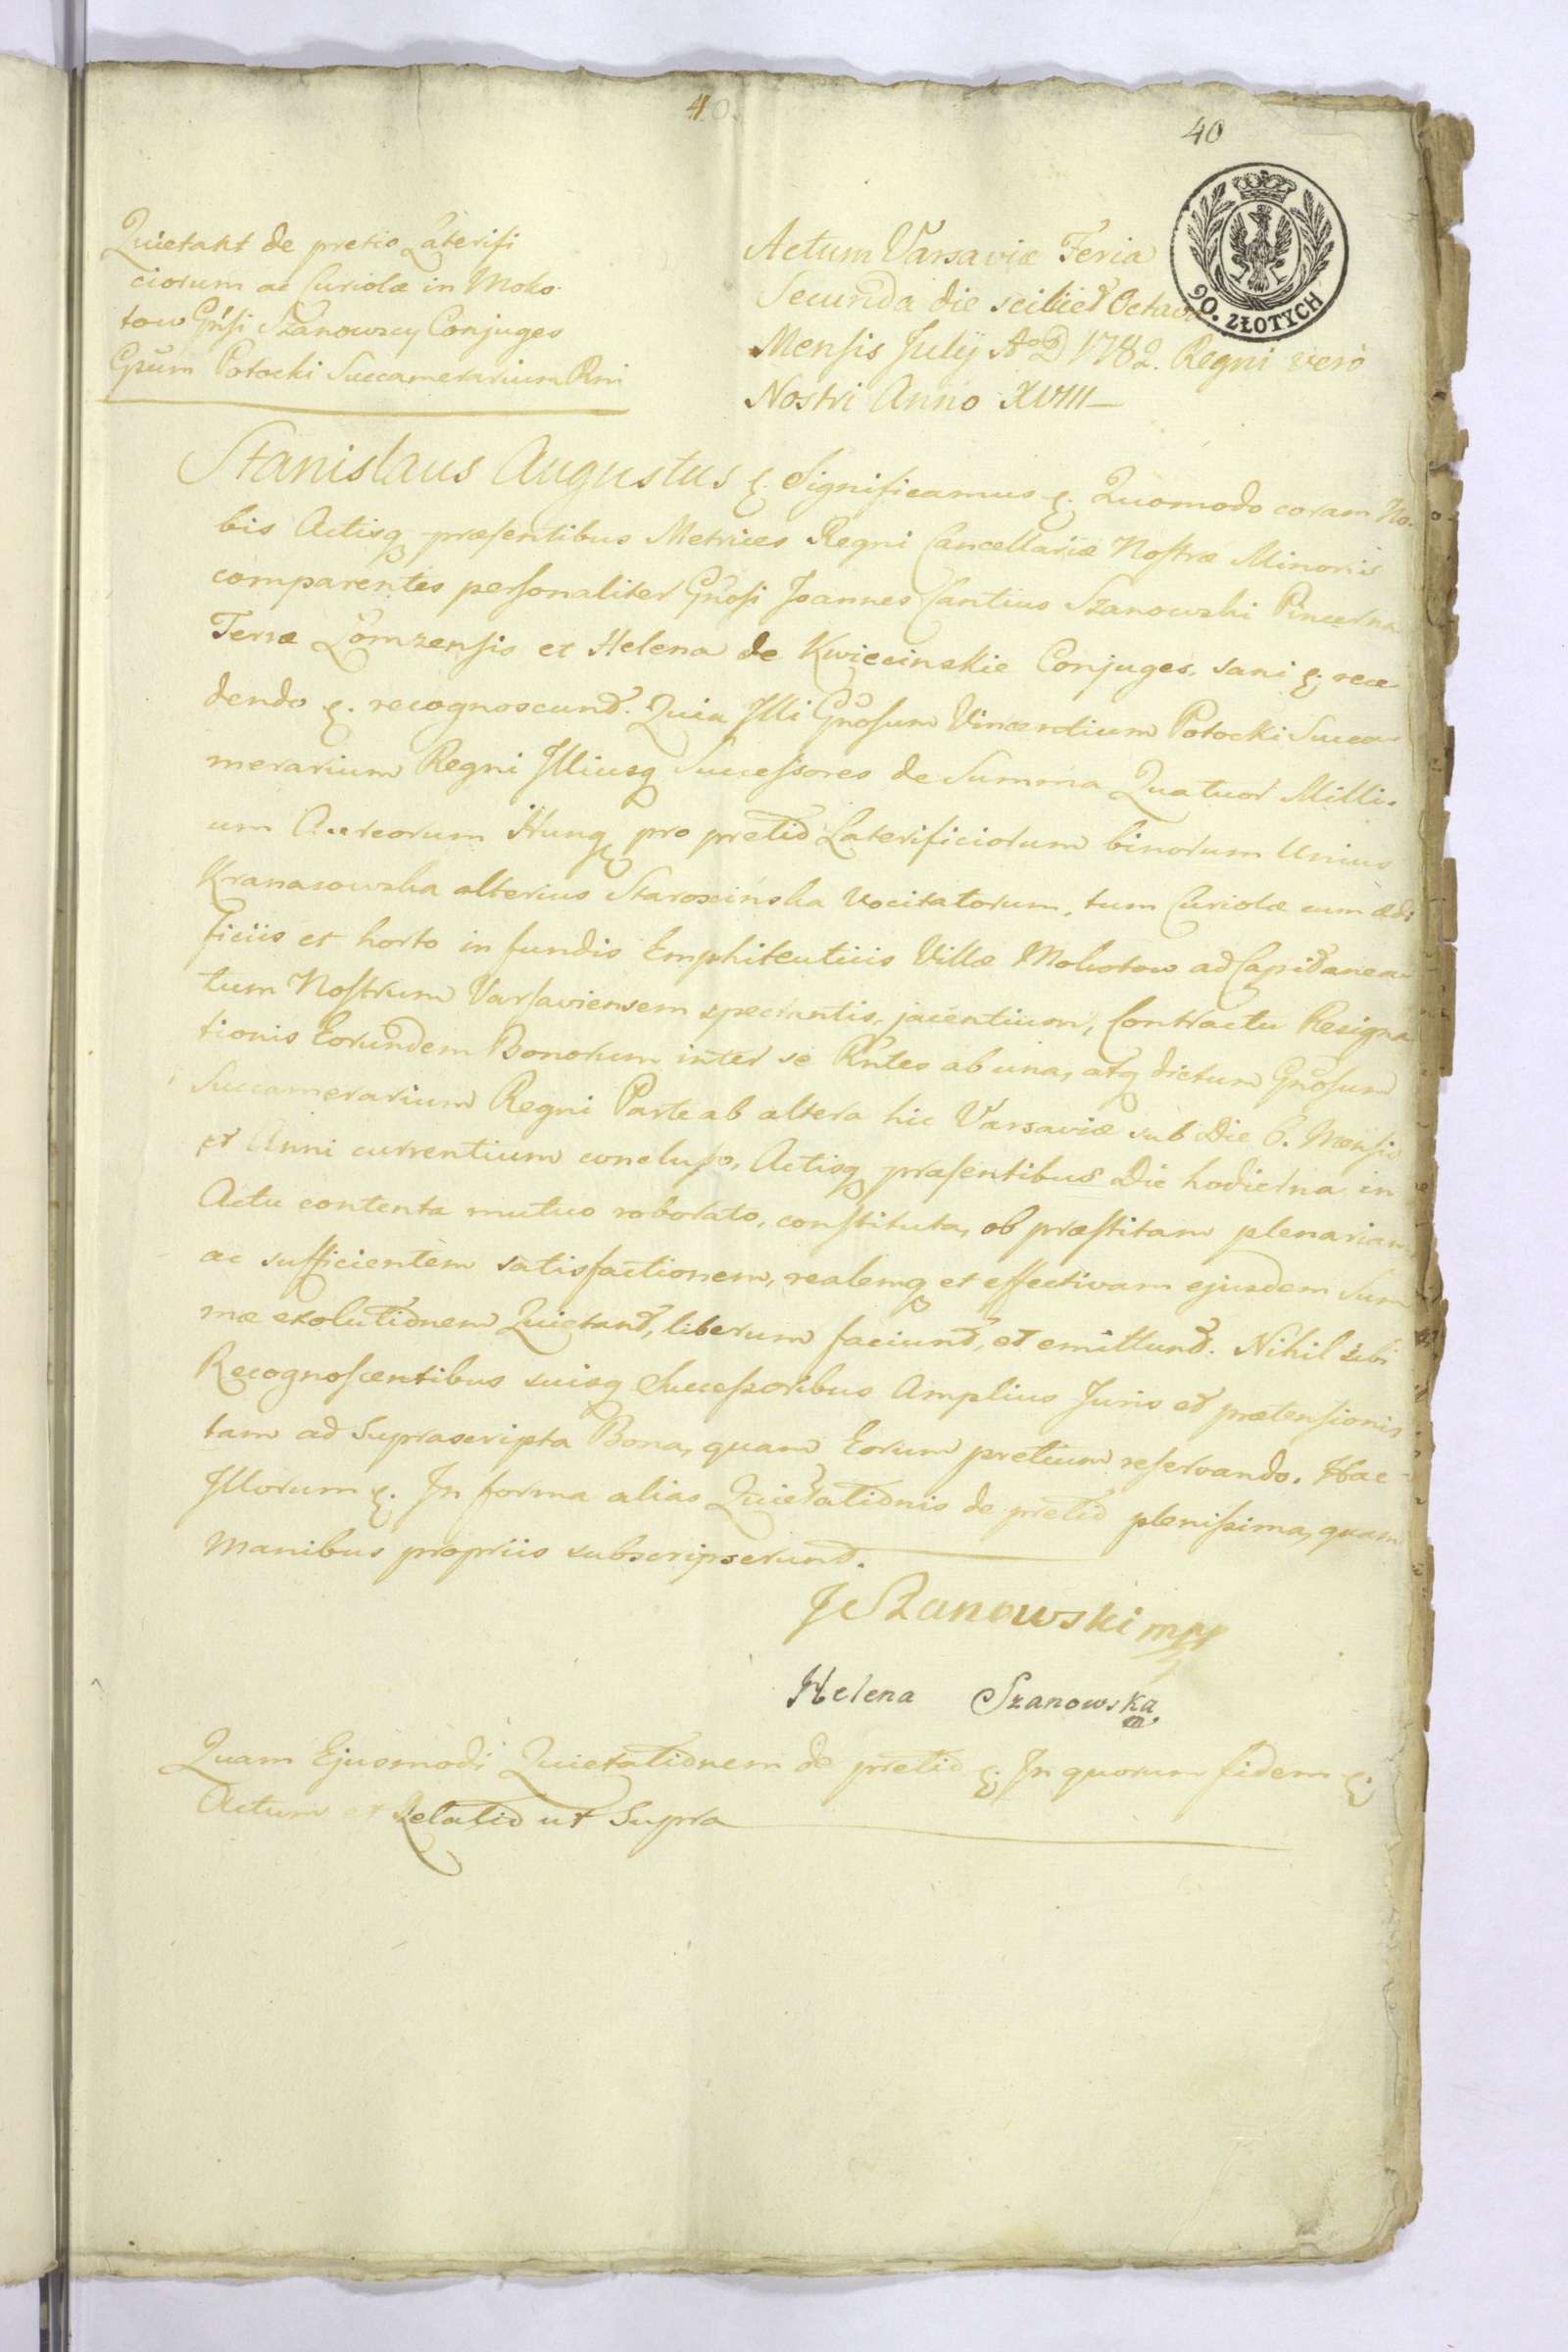 40.
40
90. ZŁOTYCH
Quietant de pretio Laterifi
ciorum ac Curiolæ in Moko
tow Gnsi Szanowscy Conjuges
Gsum Potocki Succamerarium Rni
Actum Varsaviæ Feria
Secunda die scilicet Octava
Mensis July Ao D 1782. Regni vero
Nostri Anno XVIII
Stanislaus Augustus &. Significamus &. Quomodo coram No
bis Actisq præsentibus Metrices Regni Cancellariæ Nostræ Minoris
comparentes personaliter Gnosi Joannes Cantius Szanowski Pincerna
Terræ Łomzensis et Helena de Kwiecinskie Conjuges, sani &; rece
dendo &. recognoscunt. Quia Illi Gnosum Vincentium Potocki Succa
merarium Regni Illiusq Successores de Summa Quatuor Milli.
um Aureorum Hung pro pretio Laterificiorum binorum Unius
Kranasowska alterius Starościńska vocitatorum, tum Curiolæ cum ædi
ficiis et horto in fundis Emphiteuticis Villæ Mokotow ad Capitanea
tum Nostrum Varsaviensem spectantis, jacentium, Contractu Resigna
tionis Eorundem Bonorum inter se Rntes ab una, atq dictum Gnosum
Succamerarium Regni Parte ab altera hic Varsaviæ sub Die 6. Mensis
et Anni currentium concluso, Actisq præsentibus Die hodierna in
Actu contenta mutuo roborato, constituta, ob præstitam plenariam
ac sufficientem satisfactionem, realemq et effectivam ejusdem Sum
mæ exolutionem Quietant, liberum faciunt, et emittunt. Nihil sibi
Recognoscentibus suisq Successoribus Amplius Juris et prætensionis
tam ad Suprascripta Bona, quam Eorum pretium reservando. Hac
Illorum &. In forma alias Quietationis de pretio plenissima, quam
Manibus propriis subscripserunt.
JCSzanowski mp
Helena Szanowska
Quam Ejusmodi Quietationem de pretio &; In quorum fidem &;
Actum et Relatio ut Supra